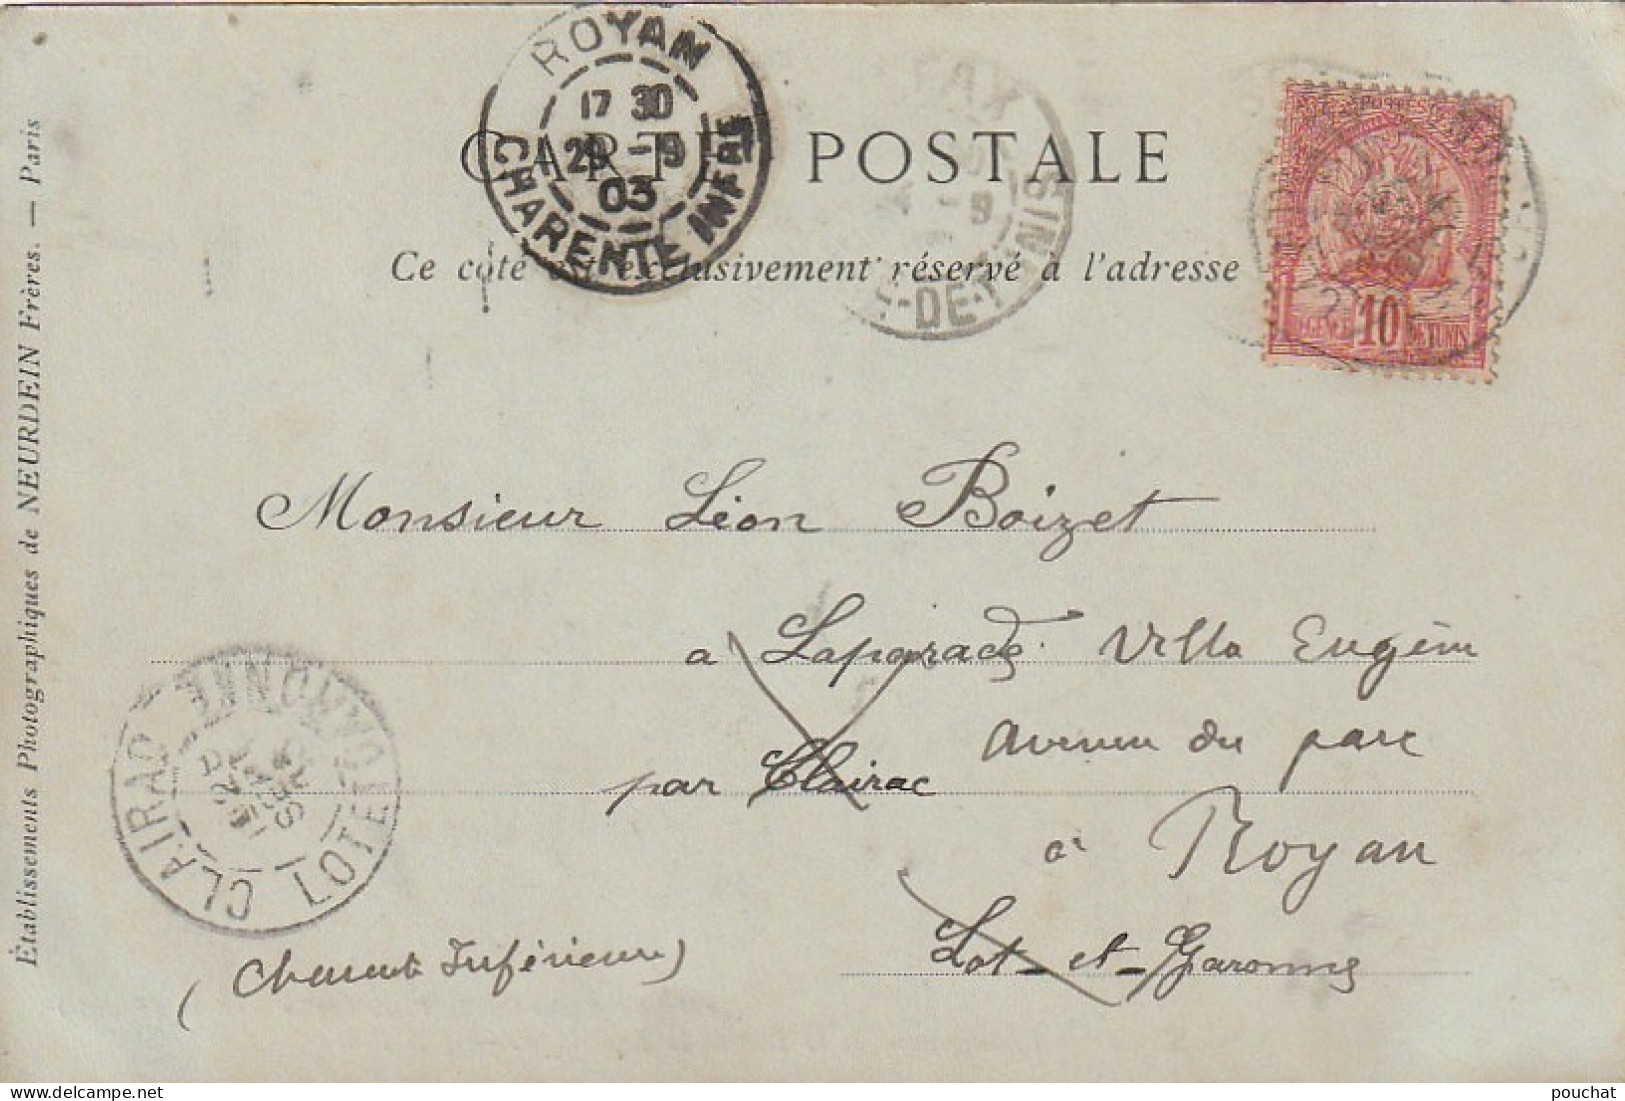 ROYAN
17 30
29 -9
03
CHARENTE INFRE
CARTE POSTALE
FAX
-9
Ce côté est exclusivement réservé à l'adresse
POSTES
10
RÉGENCE DE TUNIS
Monsieur Léon Boizet
à Laparade Villa Eugéni
Avenue du parc
par Clairac
à Royan
Lot-et-Garonne
(Charente Inférieure)
CLAIRAC
LOT ET GARONNE
Établissements Photographiques de NEURDEIN Frères. — Paris
pouchat